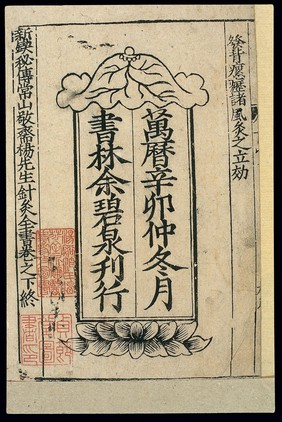 發背癧瘰諸風灸之立効
萬曆辛卯仲冬月
書林余碧泉刊行
新鋟秘傳常山敬齋楊先生針灸全書卷之下終